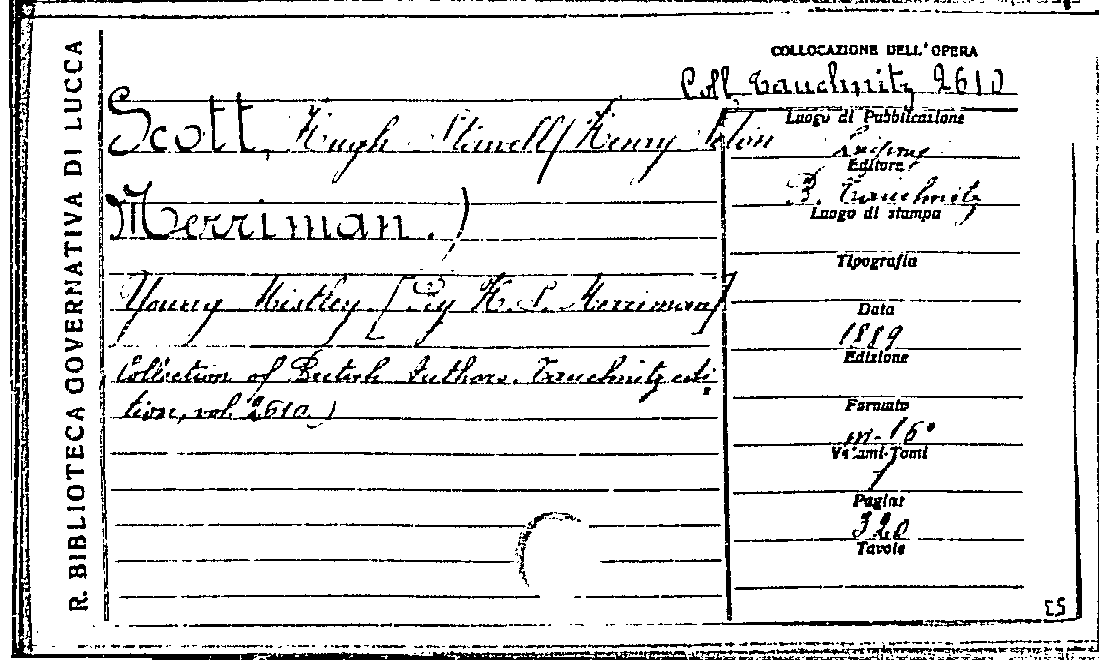 R. BIBLIOTECA GOVERNATIVA DI LUCCA
COLLOCAZIONE DELL'OPERA
Coll. Tauchnitz 2610
Scott, Hugh Stowell (Henry Seton
Merriman.)
Young Mistley [By H. S. Merriman]
Collection of British Authors. Tauchnitz edi-
tion, vol. 2610.)
Luogo di Pubblicazione
Leipzig
Editore
B. Tauchnitz
Luogo di stampa
Tipografia
Data
1889
Edizione
Formato
in-16°
Volumi-Tomi
1
Pagine
320
Tavole